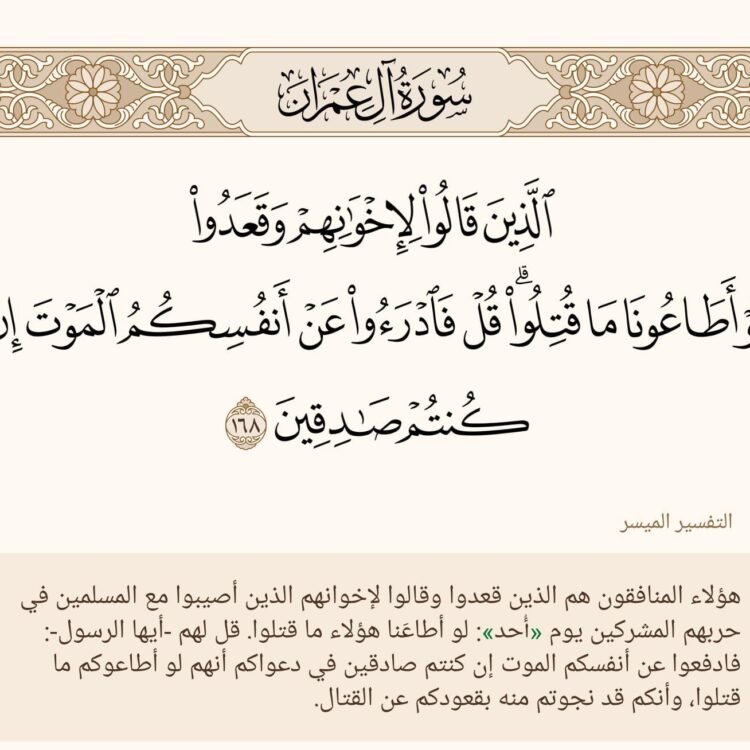 سُورَةُ آلِ عِمْرَانَ
ٱلَّذِينَ قَالُوا۟ لِإِخْوَٰنِهِمْ وَقَعَدُوا۟
أَطَاعُونَا مَا قُتِلُوا۟ ۗ قُلْ فَٱدْرَءُوا۟ عَنْ أَنفُسِكُمُ ٱلْمَوْتَ إِن
كُنتُمْ صَـٰدِقِينَ ١٦٨
التفسير الميسر
هؤلاء المنافقون هم الذين قعدوا وقالوا لإخوانهم الذين أصيبوا مع المسلمين في
حربهم المشركين يوم «أحد»: لو أطاعَنا هؤلاء ما قتلوا. قل لهم -أيها الرسول-:
فادفعوا عن أنفسكم الموت إن كنتم صادقين في دعواكم أنهم لو أطاعوكم ما
قتلوا، وأنكم قد نجوتم منه بقعودكم عن القتال.